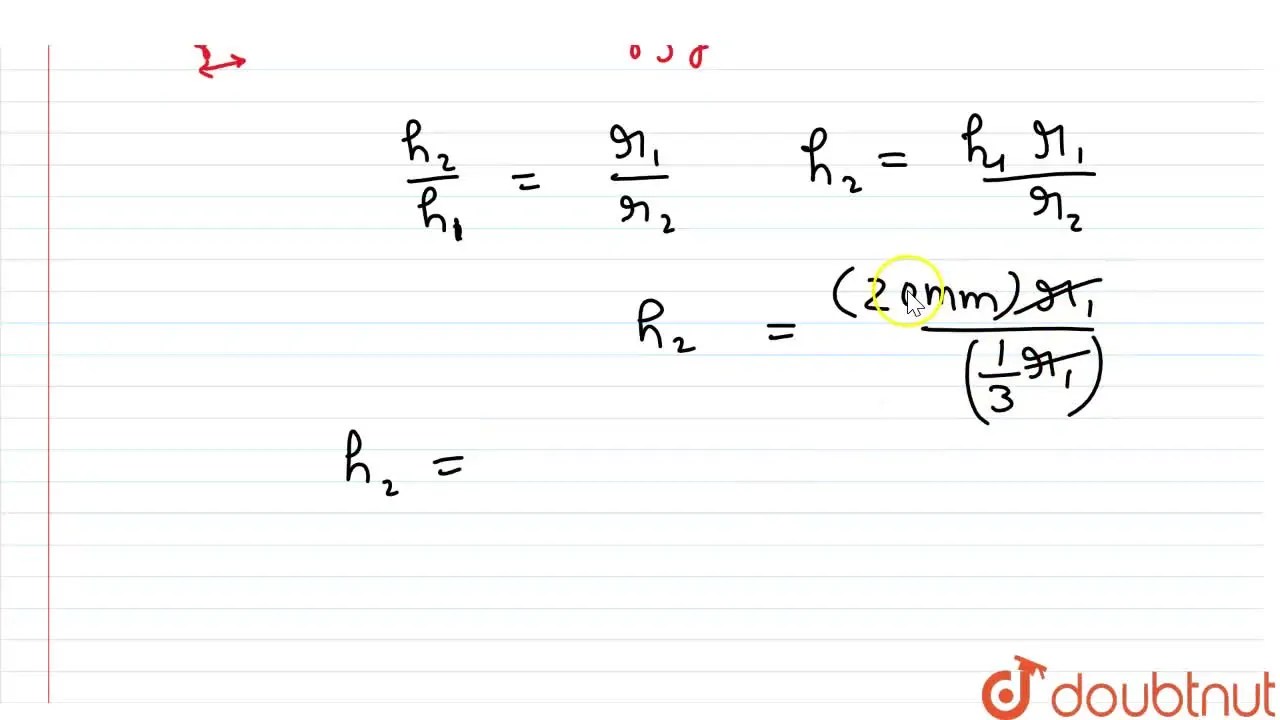 h₂/h₁ = r₁/r₂ h₂ = h₁ r₁/r₂
h₂ = (20mm) r₁/(1/3 r₁)
h₂ =
doubtnut